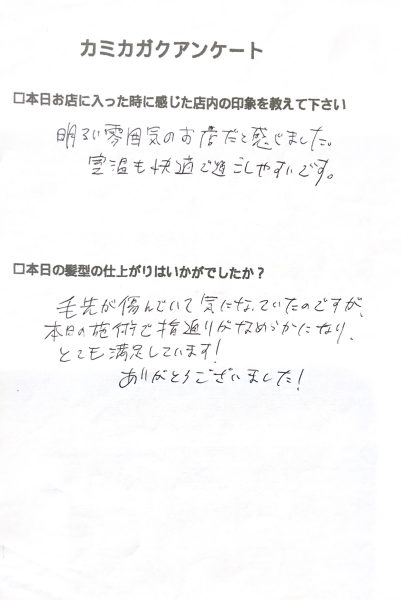 カミカガクアンケート
□本日お店に入った時に感じた店内の印象を教えて下さい
明るい雰囲気のお店だと感じました。
室温も快適で過ごしやすいです。
□本日の髪型の仕上がりはいかがでしたか？
毛先が傷んでいて気になっていたのですが、
本日の施術で指通りがなめらかになり、
とても満足しています!
ありがとうございました!